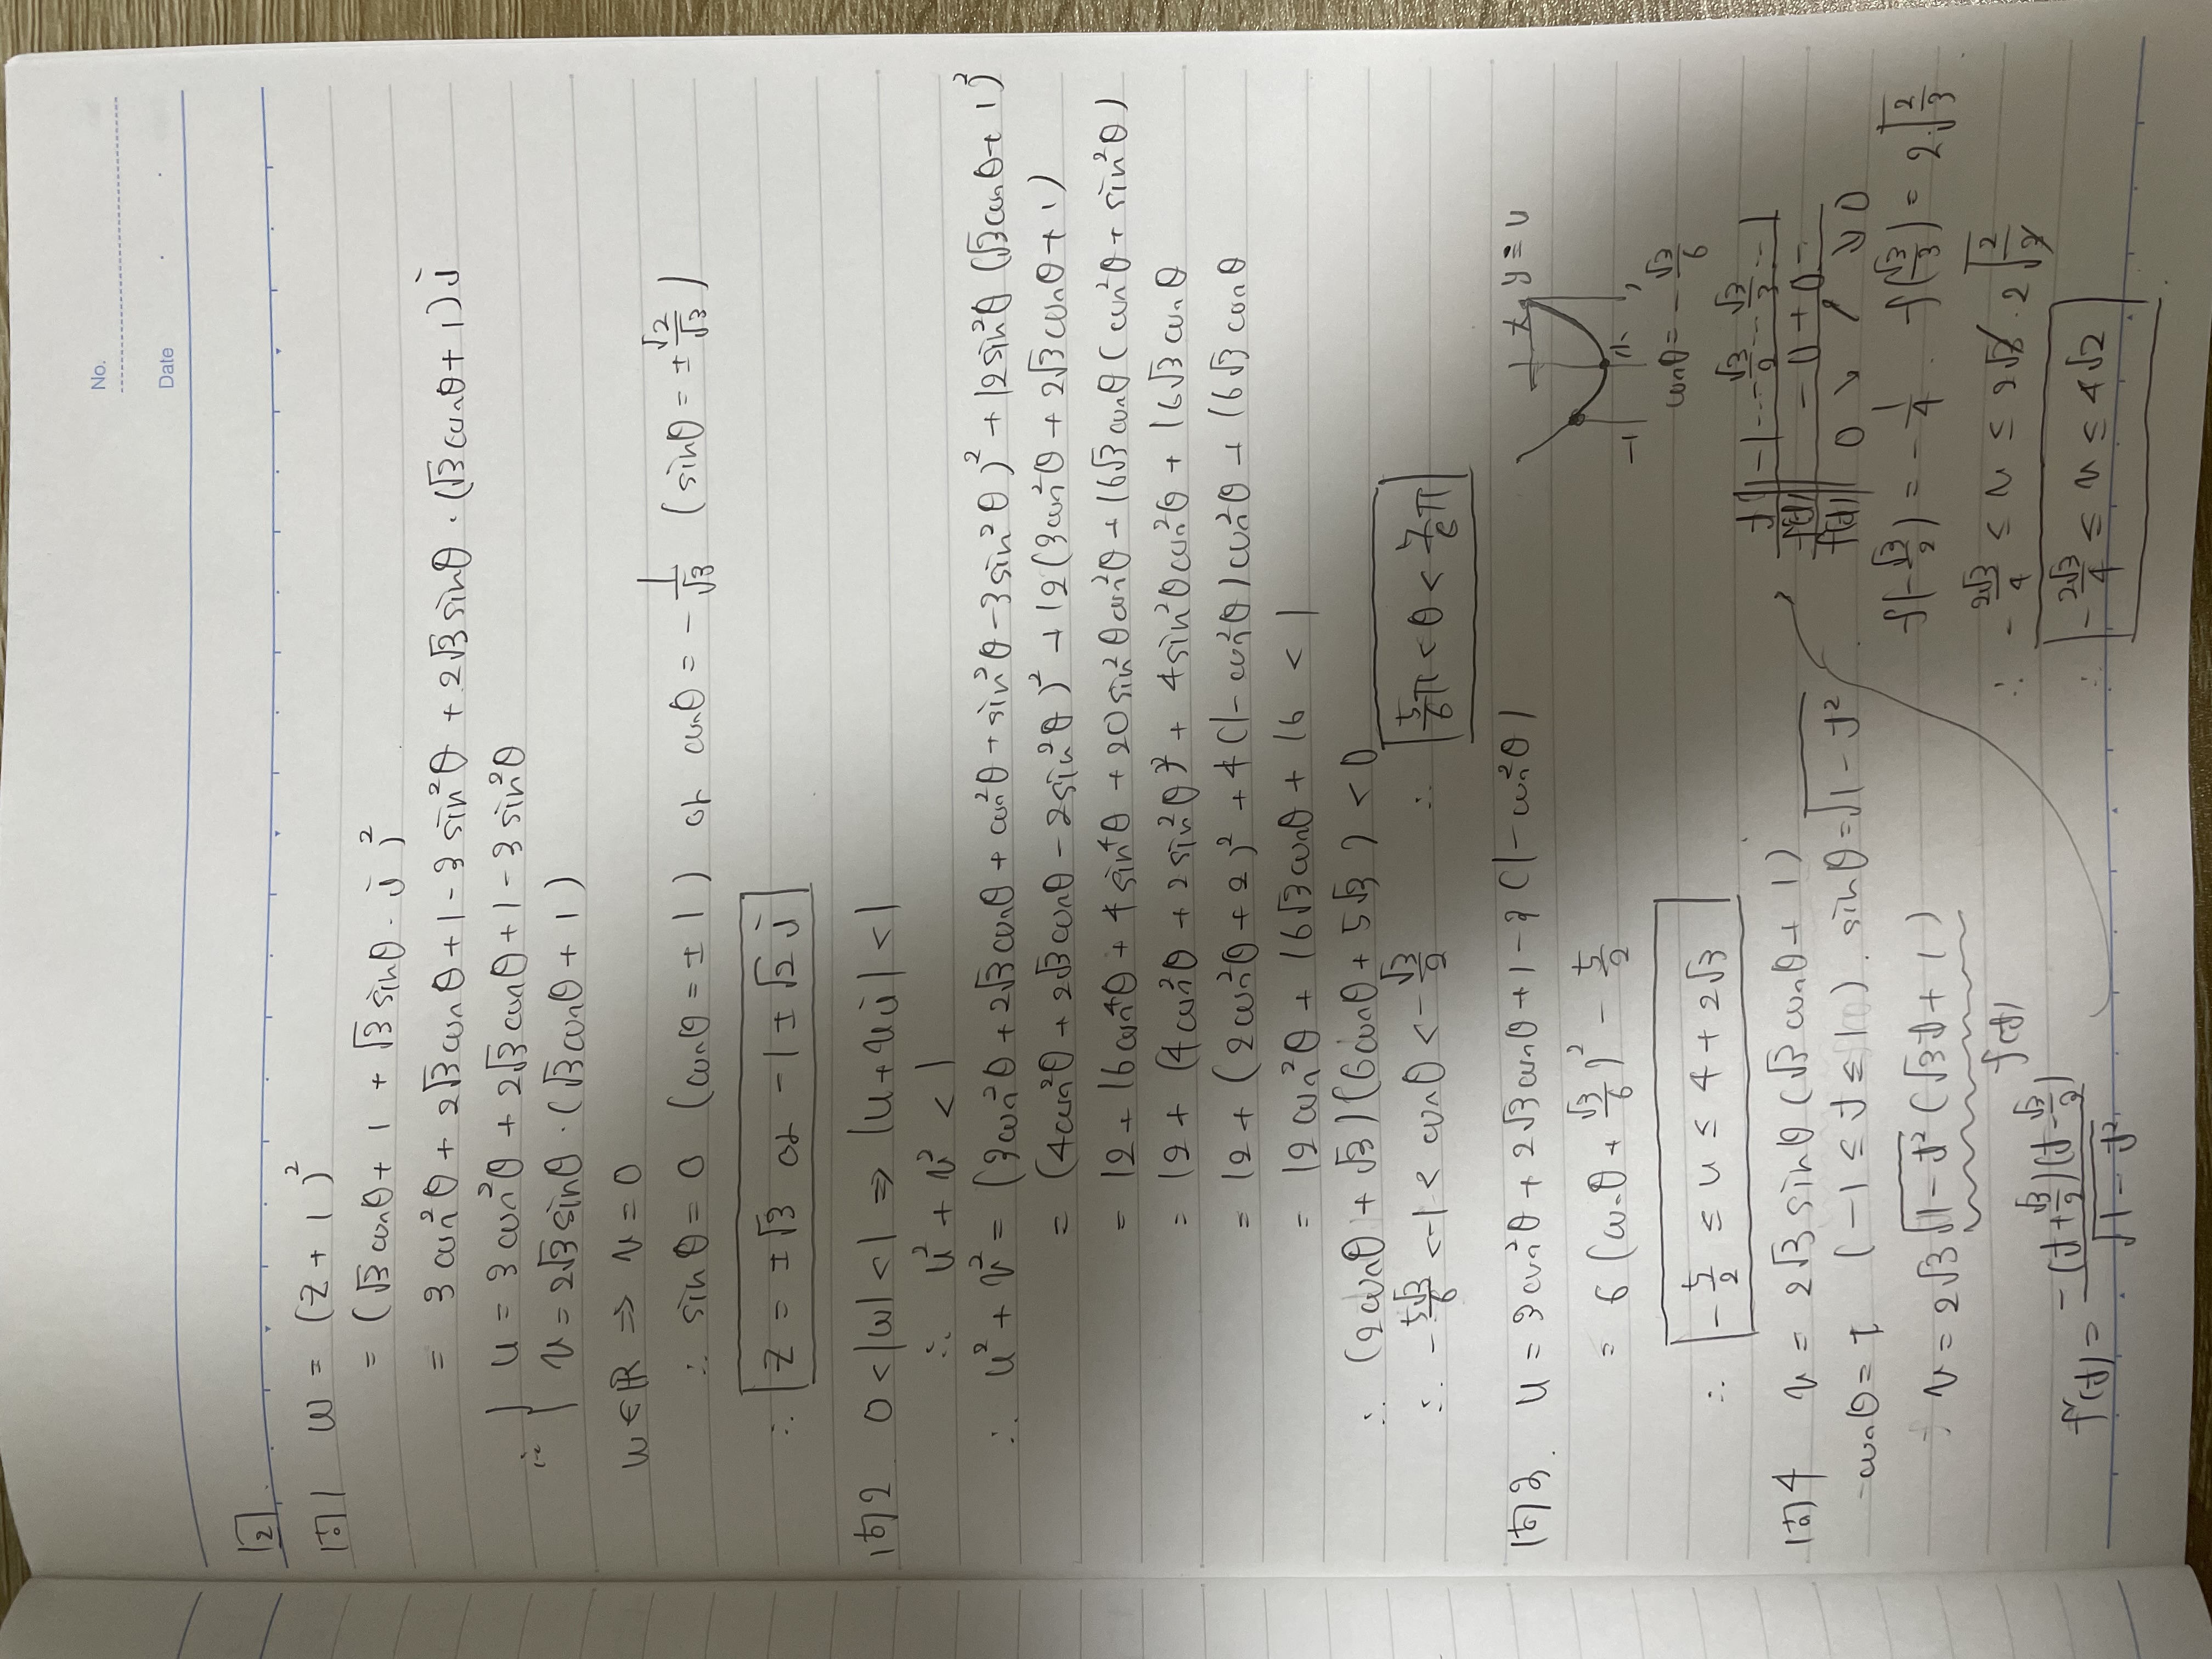 No.
Date
2
問1 w = (z+1)²
= (√3 cosθ + 1 + √3 sinθ・i)²
= 3cos²θ + 2√3cosθ + 1 - 3sin²θ + 2√3sinθ・(√3cosθ+1)i
∴ { u = 3cos²θ + 2√3cosθ + 1 - 3sin²θ
v = 2√3sinθ・(√3cosθ+1)
w∈ℝ ⇒ v = 0
∴ sinθ = 0 (cosθ = ±1) or cosθ = -1/√3 (sinθ = ±√2/√3)
∴ z = ±√3 or -1±√2i
問2 0<|w|<1 ⇒ |u+vi|<1
∴ u²+v² < 1
∴ u²+v² = (3cos²θ + 2√3cosθ + cos²θ + sin²θ - 3sin²θ)² + 12sin²θ(√3cosθ+1)²
= (4cos²θ + 2√3cosθ - 2sin²θ)² + 12(3cos²θ + 2√3cosθ + 1)
= 12 + 16cos⁴θ + 4sin⁴θ + 20sin²θcos²θ + 16√3cosθ(cos²θ + sin²θ)
= 12 + (4cos²θ + 2sin²θ)² + 4sin²θcos²θ + 16√3cosθ
= 12 + (2cos²θ+2)² + 4(1-cos²θ)cos²θ + 16√3cosθ
= 12cos²θ + 16√3cosθ + 16 < 1
∴ (2cosθ+√3)(6cosθ+5√3) < 0
∴ -5√3/6 < -1 < cosθ < -√3/2 ∴ 5/6π < θ < 7/6π
問3. u = 3cos²θ + 2√3cosθ + 1 - 3(1-cos²θ)
= 6(cosθ + √3/6)² - 5/2
y = u
-1
cosθ = -√3/6
∴ -5/2 ≤ u ≤ 4+2√3
問4 v = 2√3sinθ(√3cosθ+1)
cosθ = t (-1≤t≤1). sinθ = √(1-t²)
v = 2√3√(1-t²)(√3t+1)
f(t)
f'(t) = -(t+√3/2)(t-√3/3)/√(1-t²)
t | -1 … -√3/2 … √3/3 … 1
f'(t) | - 0 + 0 -
f(t) | 0 ↘ ↗ ↘ 0
f(-√3/2) = -1/4. f(√3/3) = 2・√(2/3)
∴ -2√3/4 ≤ v ≤ 2√3・2√(2/3)
∴ -2√3/4 ≤ v ≤ 4√2